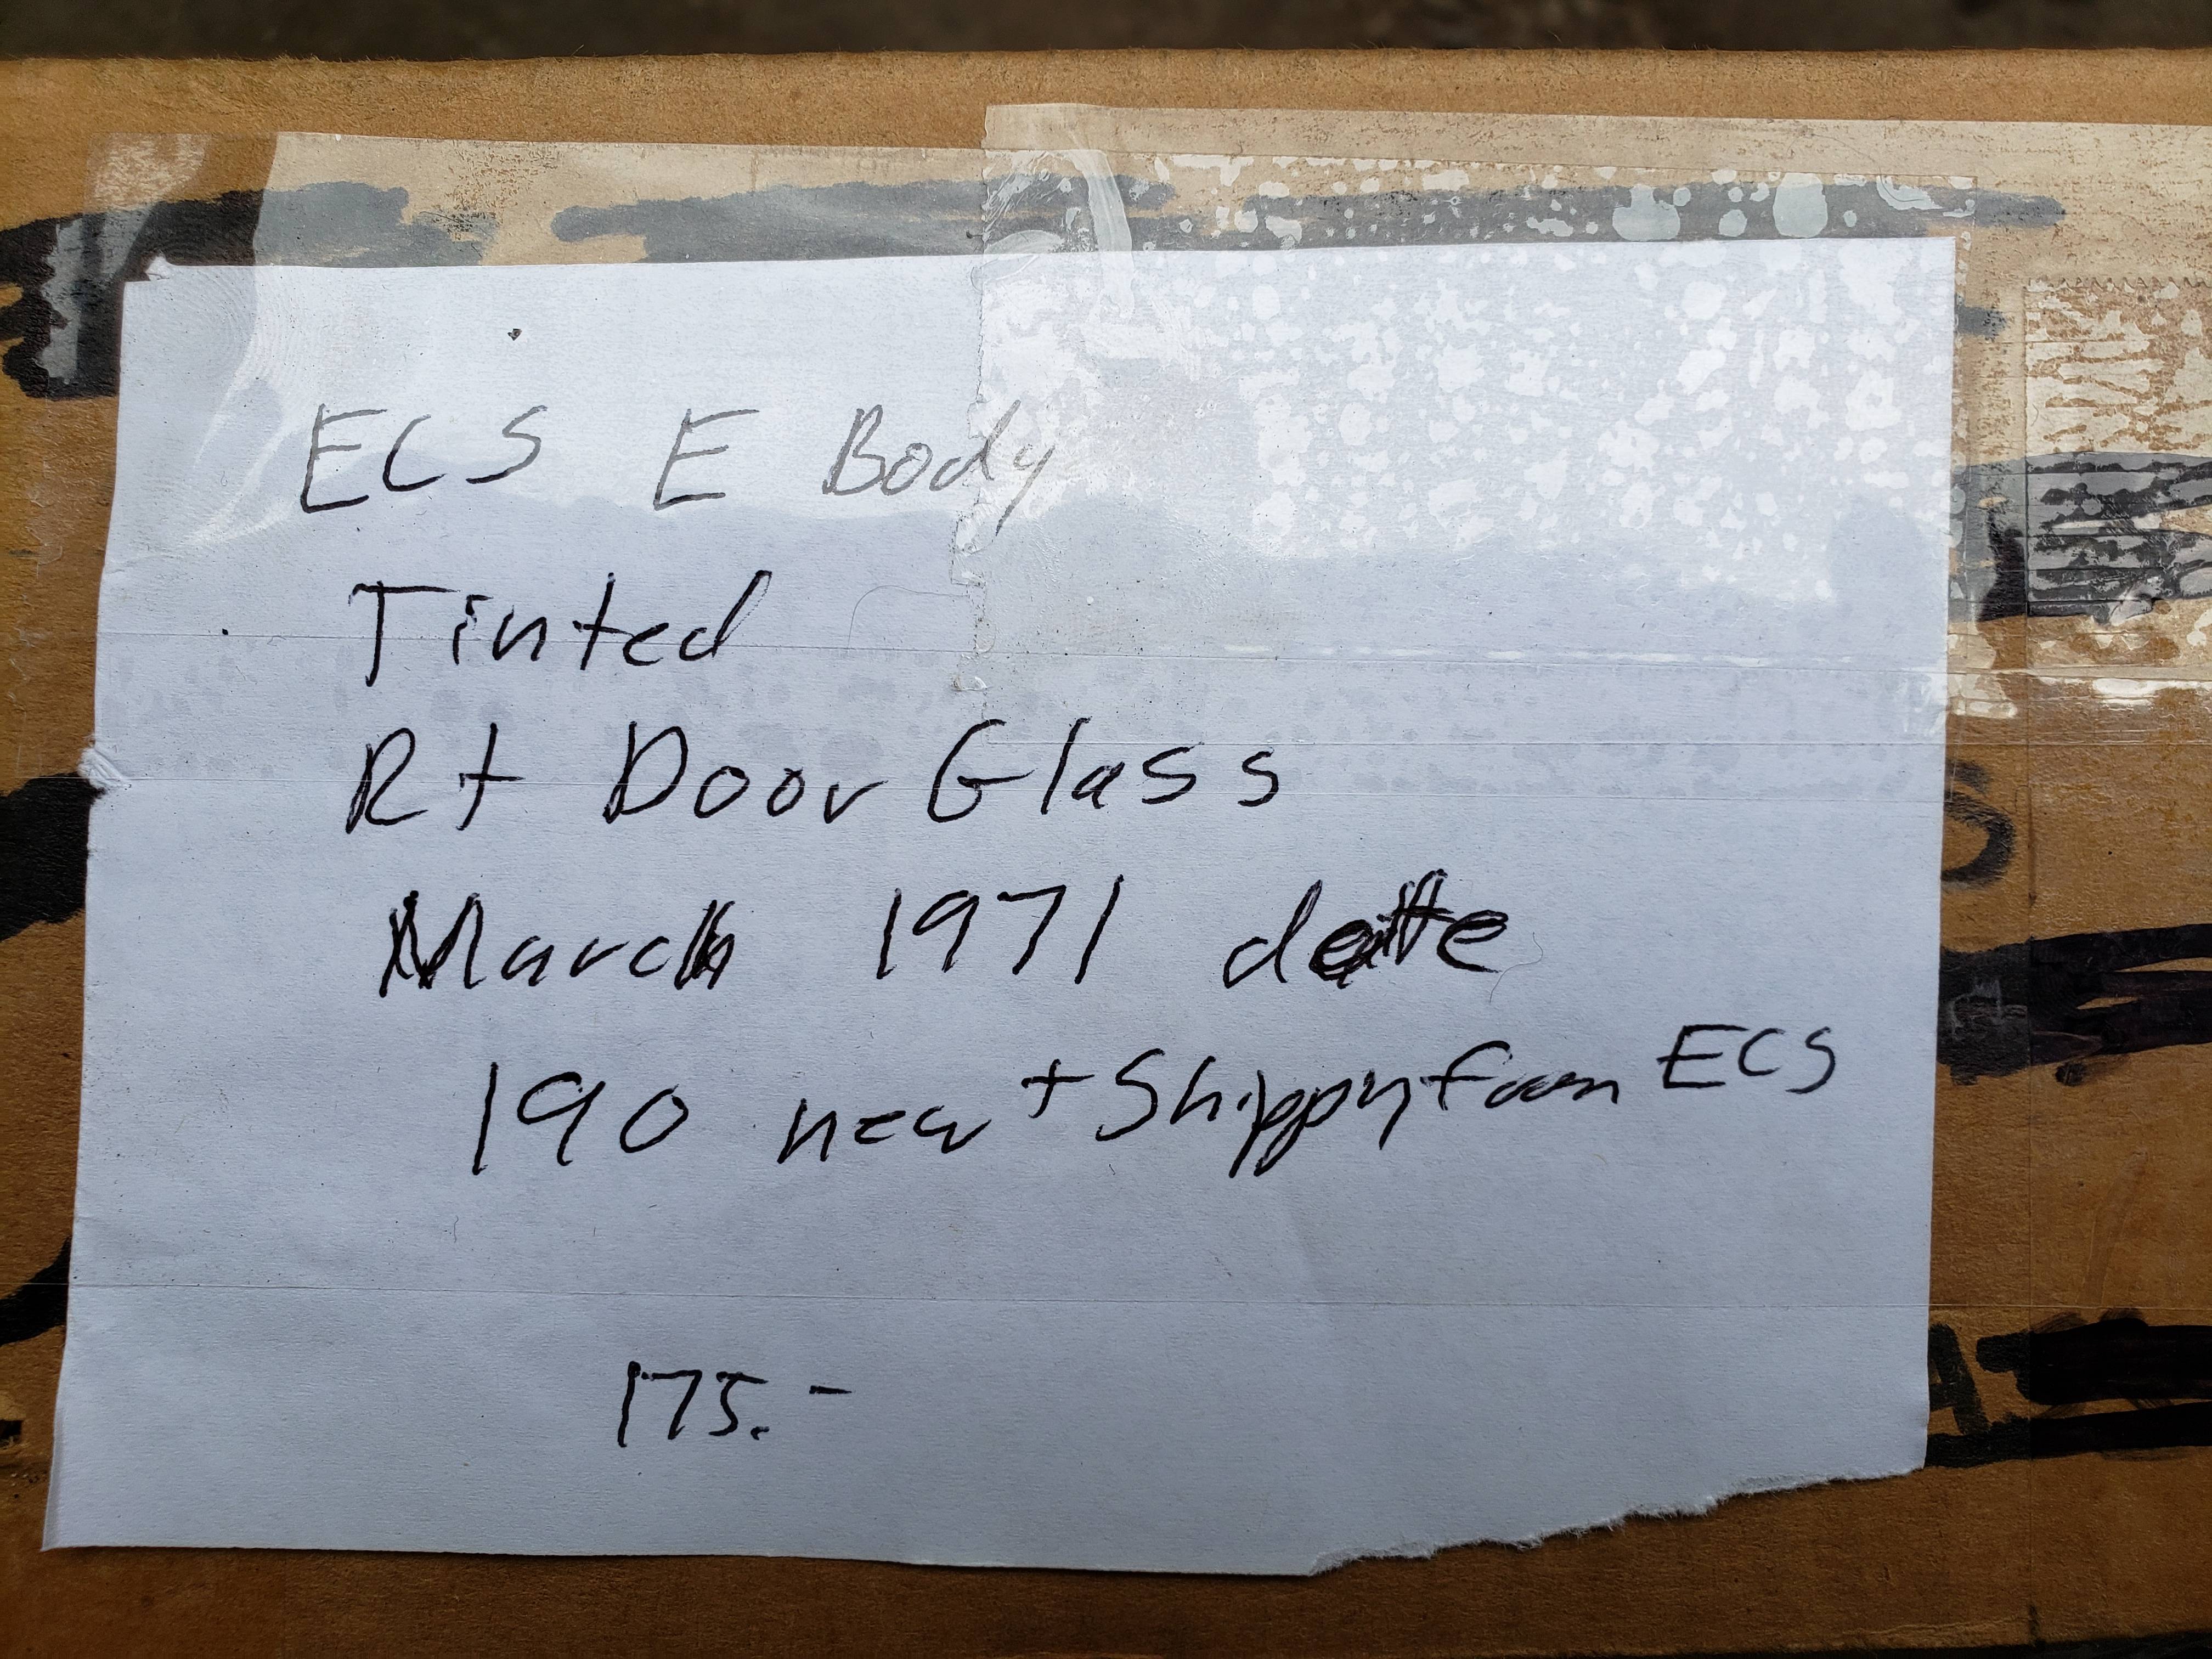 ECS E Body
Tinted
Rt Door Glass
March 1971 date
190 new + Shipping from ECS
175.-